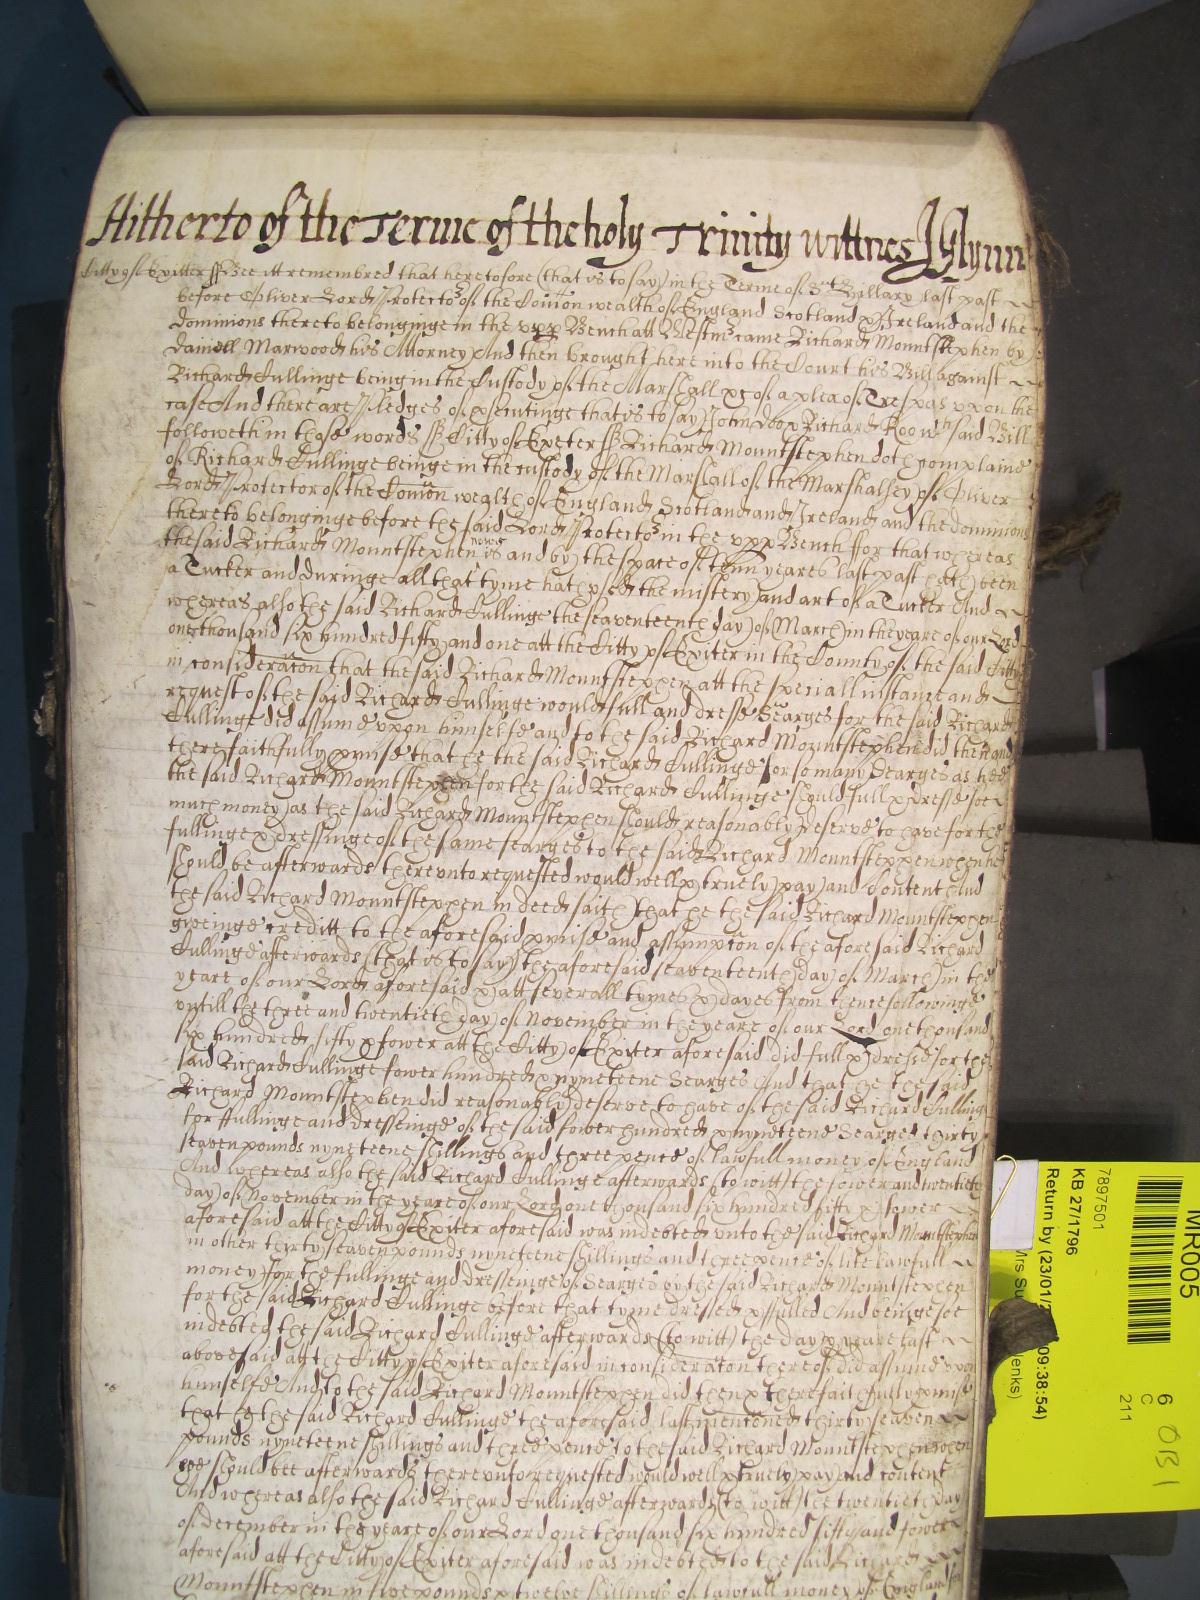 Hitherto of the Terme of the holy Trinity wittnes J Glynn
Citty of Exitter ss Bee itt remembred that heretofore (that is to say) in the Terme of St Hillary last past
before Oliver Lord Protector of the Comon wealth of England Scotland & Ireland and the
dominions thereto belonginge in the vpp Bench att Westmr came Richard Mountstephen by
Daniell Marwood his Attorney And then brought here into the Court his Bill against
Richard Cullinge being in the Custody of the Marshall &c of a plea of Trespas vpon the
case And there are Pledges of psecutinge that is to say John Doo & Richard Roo wch said Bill
followeth in these words ss Citty of Exeter ss Richard Mountstephen doth complaine
of Richard Cullinge beinge in the custody of the Marshall of the Marshalsey of Oliver
Lord Protector of the Comon wealth of England Scotland and Ireland and the dominions
thereto belonginge before the said Lord Protector in the vpp Bench ffor that whereas
the said Richard Mountstephen nowe is and by the space of tenn yeares last past hath been
a Tucker and duringe all that tyme hath vsed the mistery and art of a Tucker And
whereas also the said Richard Cullinge the seaventeenth day of March in the yeare of our Lord
one thousand six hundred fifty and one att the Citty of Exiter in the County of the said Citty
in consideracon that the said Richard Mountstephen att the speciall instance and
request of the said Richard Cullinge would full and dresse Searges for the said Richard
Cullinge did assume vpon himselfe and to the said Richard Mountstephen did then and
there faithfully pmise that he the said Richard Cullinge for so many Searges as hee
the said Richard Mountstephen for the said Richard Cullinge should full & dresse soe
much money as the said Richard Mountstephen should reasonably deserve to have for the
fullinge & dressinge of the same searges to the said Richard Mountstephen when he
should be afterwards therevnto requested would well & truely pay and Content And
the said Richard Mountstephen in deed saith that he the said Richard Mountstephen
giveinge creditt to the aforesaid pmise and assumption of the aforesaid Richard
Cullinge afterwards (that is to say) the aforesaid seaventeenth day of March in the
yeare of our Lord aforesaid & att severall tymes & dayes from thence followinge
vntill the three and twentieth day of November in the yeare of our Lord one thousand
six hundred fifty & fower att the Citty of Exiter aforesaid did full & dresse for the
said Richard Cullinge fower hundred & nyneteene Searges And that he the said
Richard Mountstephen did reasonably deserve to have of the said Richard Cullinge
for ffullinge and dresseinge of the said fower hundred & nyneteene Searges thirty
seaven pounds nyneteene shillings and three pence of lawfull money of England
And whereas also the said Richard Cullinge afterwards (to witt) the fower and twentieth
day of November in the yeare of our Lord one thousand six hundred fifty & fower
aforesaid att the Citty of Exiter aforesaid was indebted vnto the said Richard Mountstephen
in other thirty seaven pounds nyneteene shillings and three pence of like lawfull
money for the fullinge and dresseinge of Searges by the said Richard Mountstephen
for the said Richard Cullinge before that tyme dressed & fulled And beinge soe
indebted the said Richard Cullinge afterwards (to witt) the day & yeare last
abovesaid att the Citty of Exiter aforesaid in consideraton thereof did assume vpon
himselfe And to the said Richard Mountstephen did then & there faithfully pmise
that he the said Richard Cullinge the aforesaid last mentioned thirty seaven
pounds nyneteene shillings and three pence to the said Richard Mountstephen when
hee should bee afterwards therevnto requested would well & truely pay and content
And whereas also the said Richard Cullinge afterwards (to witt) the twentieth day
of December in the yeare of our Lord one thousand six hundred fifty and fower
aforesaid att the Citty of Exiter aforesaid was indebted to the said Richard
Mountstephen in five pounds & twelve shillings of lawfull money of England
MR005
7897501
KB 27/1796
Return by (23/01/2 09:38:54)
Mrs Su Jenks)
6
C
211
OBI